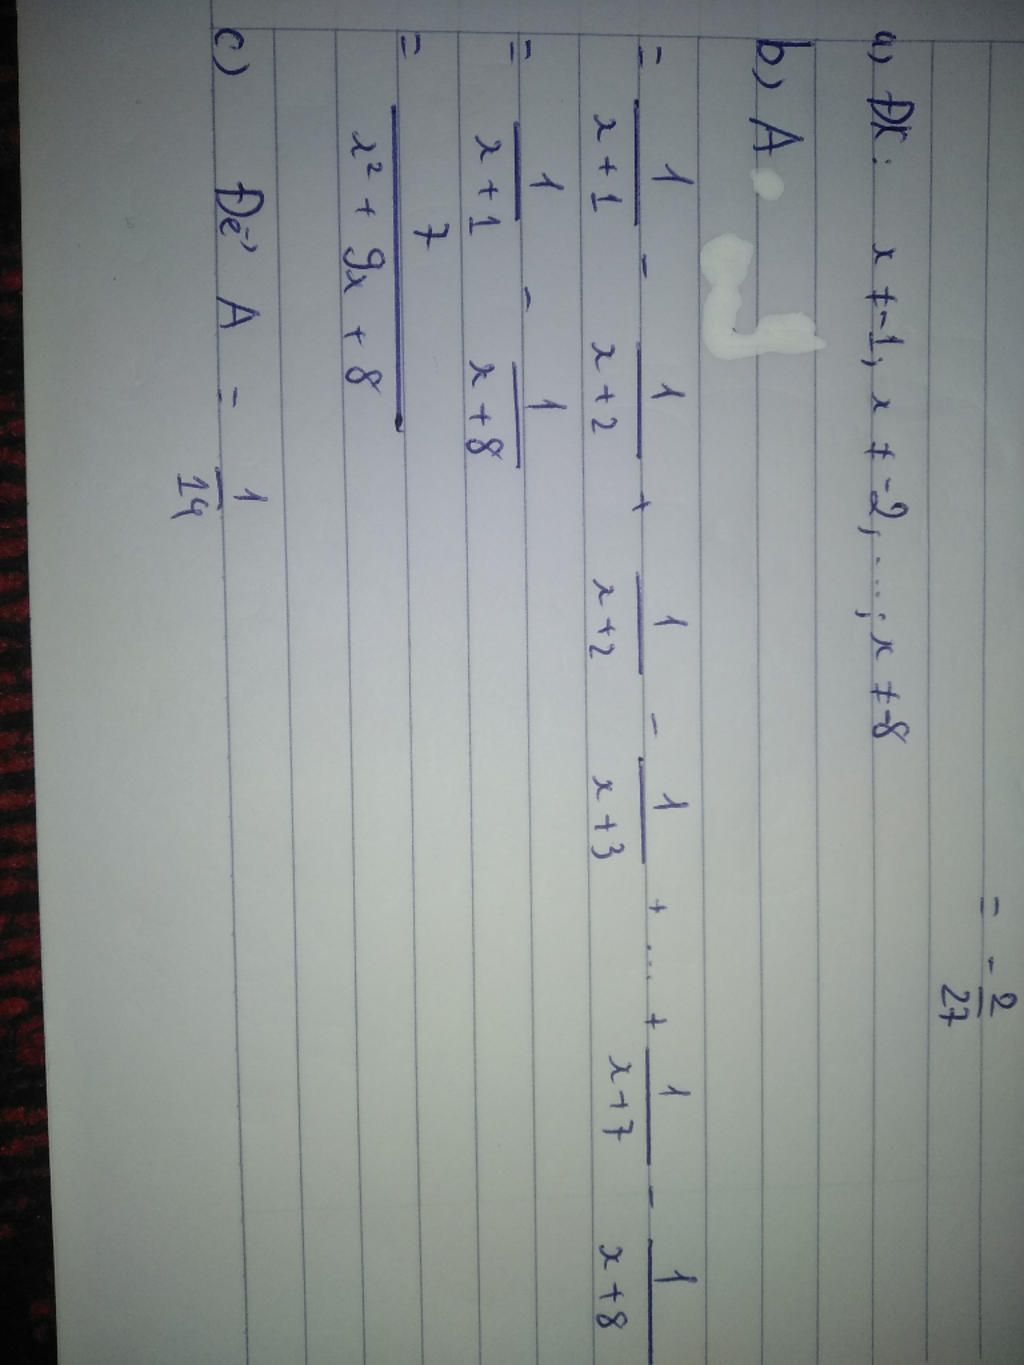 = - 2/27
a) ĐK: x ≠ -1; x ≠ -2; ...; x ≠ -8
b) A
= 1/(x+1) - 1/(x+2) + 1/(x+2) - 1/(x+3) + ... + 1/(x+7) - 1/(x+8)
= 1/(x+1) - 1/(x+8)
= 7/(x² + 9x + 8)
c) Để A = 1/14